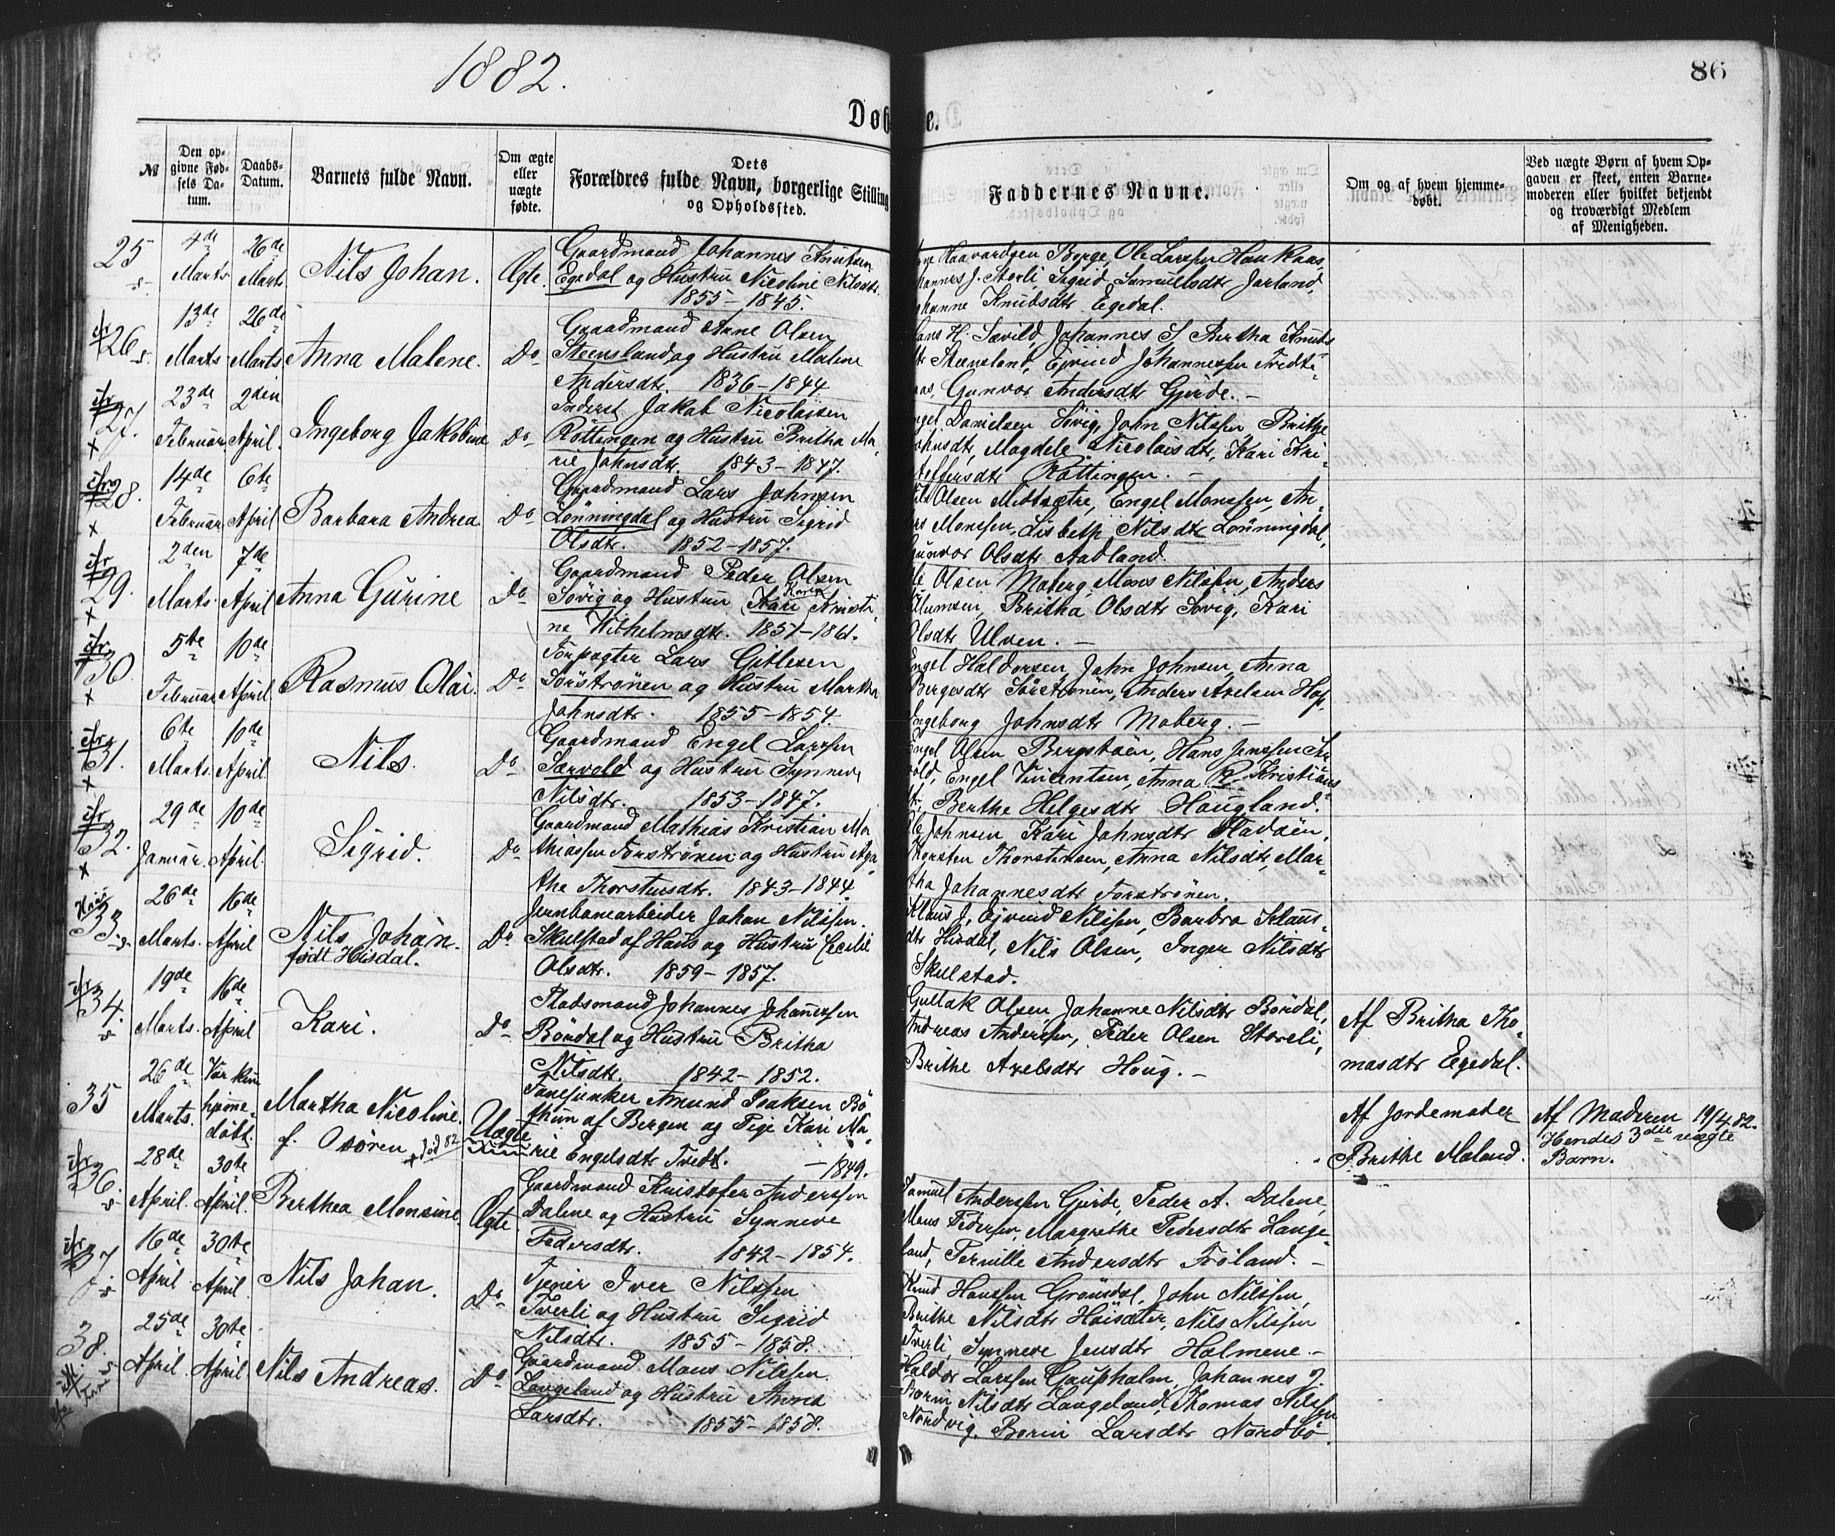 1882.
86
Døbte.
№
Den opgivne Fødsels Datum.
Daabs-Datum.
Barnets fulde Navn.
Om ægte eller uægte fødte.
Dets Forældres fulde Navn, borgerlige Stilling og Opholdssted.
Faddernes Navne.
Om og af hvem hjemmedøbt.
Ved uægte Børn af hvem Opgaven er skeet, enten Barnemoderen eller hvilket bekjendt og troværdigt Medlem af Menigheden.
25 4de Marts 26de Marts Nils Johan. Ægte. Gaardmand Johannes Knutsen
Egedal og Hustru Nicoline Nilsdtr.
1855 – 1845.
Haavardsen Borge, Ole Larssen Haukaas,
J. Størli, Sigrid Samuelsdtr Jarland,
Knudsdtr Egedal.
26 13de Marts 26de Marts Anna Malene. Do Gaardmand Aane Olsen
Steensland og Hustru Malene
Andersdtr. 1836 – 1844
H. Sævild, Johannes S, Bertha Knuds
dtr Steensland, Ejvind Johannessen Tredte-
aas, Gunvor Andersdtr Gjerde. –
27. 23de Februar 2den April. Ingeborg Jakobine Do Inderst Jakob Nicolaisen
Røttingen og Hustru Britha Ma-
rie Johnsdtr. 1843 – 1847.
Danielsen Søvig, John Nilssen Brithe
Johnsdtr, Magdele Nicolaisdtr, Kari Kri-
stoffersdtr Røttingen. –
28. 14de Februar 6te April Barbara Andrea Do Gaardmand Lars Johnsen
Lønningdal og Hustru Sigrid
Olsdtr. 1852 – 1857.
Olsen Midtsætre, Engel Monssen, An-
Monssen, Lisbeth Nilsdtr Lønningdal,
Gunvor Olsdtr Aadland.
29. 2den Marts. 7de April Anna Gurine Do Gaardmand Peder Olsen
Søvig og Hustru Kari Karen Kristi
ne Wilhelmsdtr. 1851 – 1861.
Ole Olsen Moberg, Mons Nilssen, Anders
Britha Olsdtr Søvig, Kari
Olsdtr Ulven. –
30. 5te Februar 10de April Rasmus Olai. Do Forpagter Lars Gitlesen
Sørstrønen og Hustru Martha
Johnsdtr. 1855 – 1854.
Engel Haldorsen, John Johnsen, Anna
Bergesdtr Sørstrønen, Anders Axelsen Hop,
Ingeborg Johnsdtr Moberg. –
31. 6te Marts. 10de April Nils. Do Gaardmand Engel Larssen
Særvold og Hustru Synneve
Nilsdtr. 1853 – 1847.
Engel Olsen Bergstøen, Hans Jenssen Sæ
vold, Engel Vincentsen, Anna Kristians
Berthe Helgesdtr Haugland.
32. 29de Januar. 10de April Sigrid. Do Gaardmand Mathias Kristian Ma
thiassen Forstrønen og Hustru Aga-
the Thorstensdtr. 1843 – 1844.
Ole Johnsen Kari Johnsdtr Hadøen,
Thorsten Thorstensen, Anna Nilsdtr, Mar-
tha Johannesdtr Forstrønen.
33. 26de Marts. 16de April Nils Johan.
født Hisdal. Do Jernbanearbeider Johan Nilssen
Skulstad af Haus og Hustru Cecilie
Olsdtr. 1859 – 1857.
Klaus J, Ejvind Nilssen, Barbro Klaus-
dtr Hisdal, Nils Olsen, Inger Nilsdtr
Skulstad.
34. 19de Marts. 16de April Kari. Do Pladsmand Johannes Johannessen
Bøndal og Hustru Britha
Nilsdtr. 1842 – 1852.
Gullak Olsen, Johanne Nilsdtr Børdal,
Andreas Anderssen, Peder Olsen Storeli,
Brithe Axelsdtr Houg. –
Af Britha Tho-
masdtr Egedal.
35 26de Marts. Var kun hjemme-døbt. Martha Nicoline
f. Osøren Uægte Amund Isaksen Bø
thun af Bergen og Pige Kari Ma-
rie Engelsdtr Tredt. – 1849.
Af Jordemoder
Brithe Moland.
Af Moderen 19/4 82.
Hendes 3die uægte
Barn.
36. 28de April. 30te April. Berthea Monsine Ægte Gaardmand Kristofer Anderssen
Dalene og Hustru Synneve
Pedersdtr. 1842 – 1854.
Samuel Anderssen Gjerde, Peder A. Dalene,
Mons Pederssen, Margrethe Pedersdtr Lange-
land, Pernille Andersdtr Frøland. –
37 16de April 30te April. Nils Johan. Do Tjener Iver Nilssen
Tverli og Hustru Sigrid
Nilsdtr. 1855 – 1858.
Knud Hanssen Grønsdal, John Nilssen,
Brithe Nilsdtr Høisæter, Nils Nilssen
Tverli, Synneve Jensdtr Holmene. –
38. 25de April 30te April Nils Andreas. Do Gaardmand Mons Nilssen
Langeland og Hustru Anna
Larsdtr. 1855 – 1858.
Haldor Larssen Gaupholm, Johannes J.
Borin Nilsdtr Langeland, Thomas Nilssen
Nordvig, Borin Larsdtr Nordbø